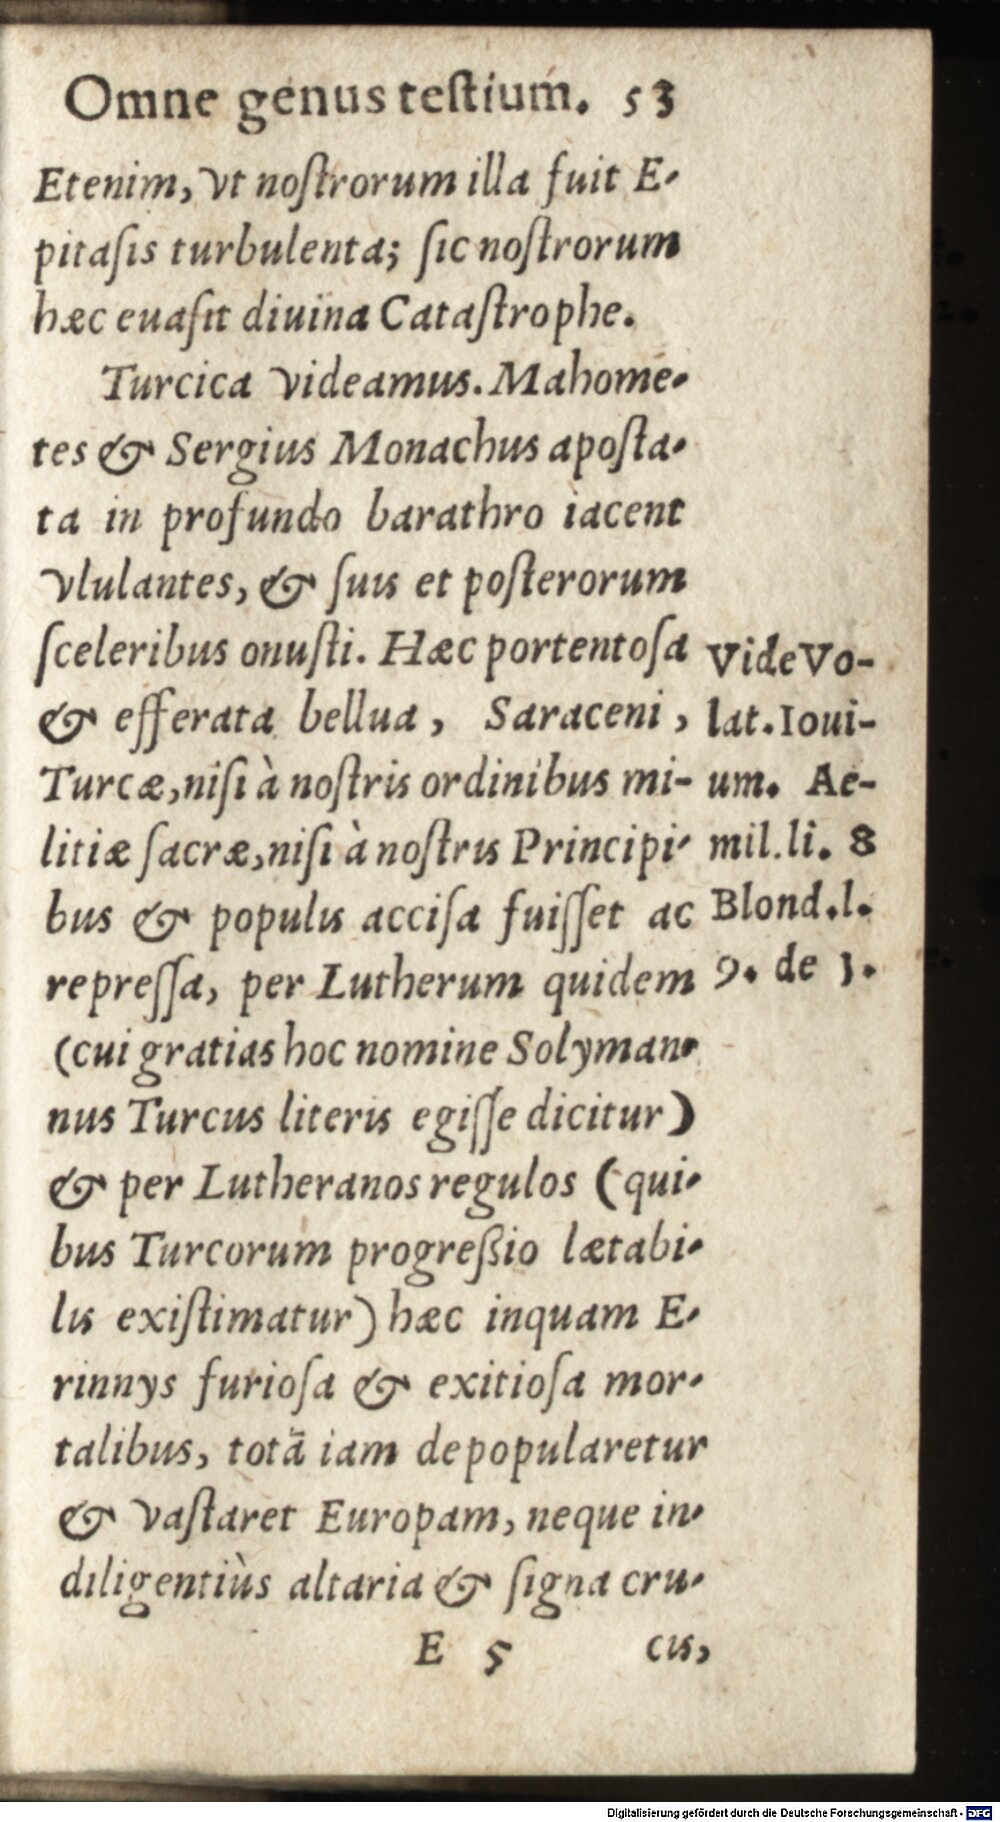 Omne genus teſtium. 53
Etenim, vt noſtrorum illa fuit E-
pitaſis turbulenta; ſic noſtrorum
hæc euaſit diuina Cataſtrophe.
Turcica videamus. Mahome-
tes & Sergius Monachus apoſta-
ta in profundo barathro iacent
vlulantes, & ſuis et poſterorum
ſceleribus onuſti. Hæc portentoſa
& efferata bellua, Saraceni,
Turcæ, niſi à noſtris ordinibus mi-
litiæ ſacræ, niſi à noſtris Principi-
bus & populis acciſa fuiſſet ac
repreſſa, per Lutherum quidem
(cui gratias hoc nomine Solyman-
nus Turcus literis egiſſe dicitur)
& per Lutheranos regulos (qui-
bus Turcorum progreßio lætabi-
lis exiſtimatur) hæc inquam E-
rinnys furioſa & exitioſa mor-
talibus, totã iam depopularetur
& vaſtaret Europam, neque in-
diligentiùs altaria & ſigna cru-
E 5 cis,
Vide Vo-
lat. Ioui-
um. Ae-
mil. li. 8
Blond. l.
9. de 3.
Digitalisierung gefördert durch die Deutsche Forschungsgemeinschaft - DFG